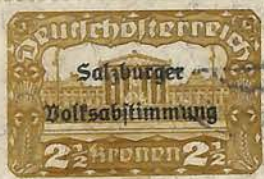 Deutschösterreich
Salzburger
Volksabstimmung
2½ Kronen 2½